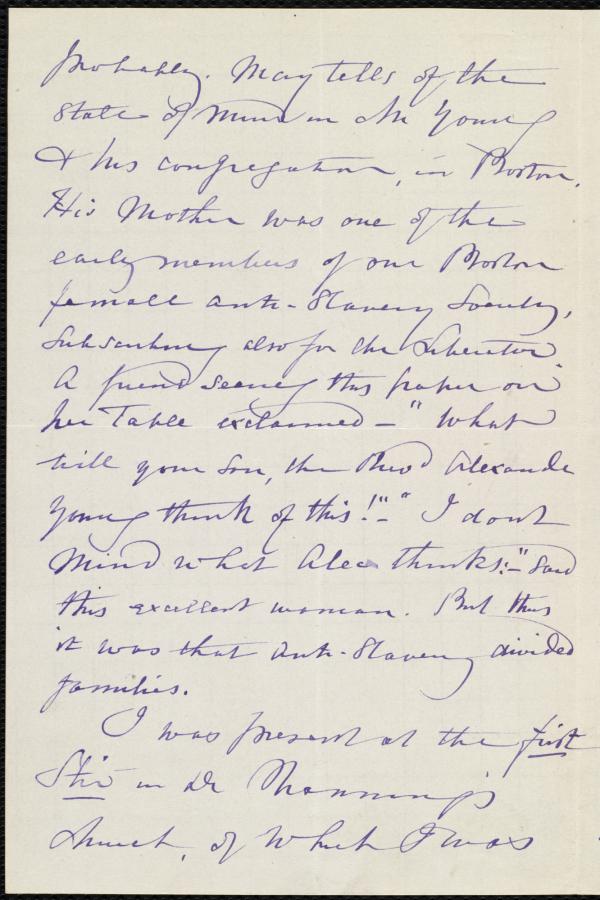 Probably. May tells of the
State of Mind in Mr Young
& his congregation, in Boston.
His Mother was one of the
early members of our Boston
female Anti-Slavery Society,
Subscribing also for the Liberator
A friend seeing this paper on
her Table exclaimed - "What
will your Son, the Revd Alexander
Young think of this!" - "I dont
Mind what Alec thinks:" - Said
this excellent woman. But thus
it was that Anti-Slavery divided
families.
I was present at the first
Stir in Dr Channing's
Church, of which I was